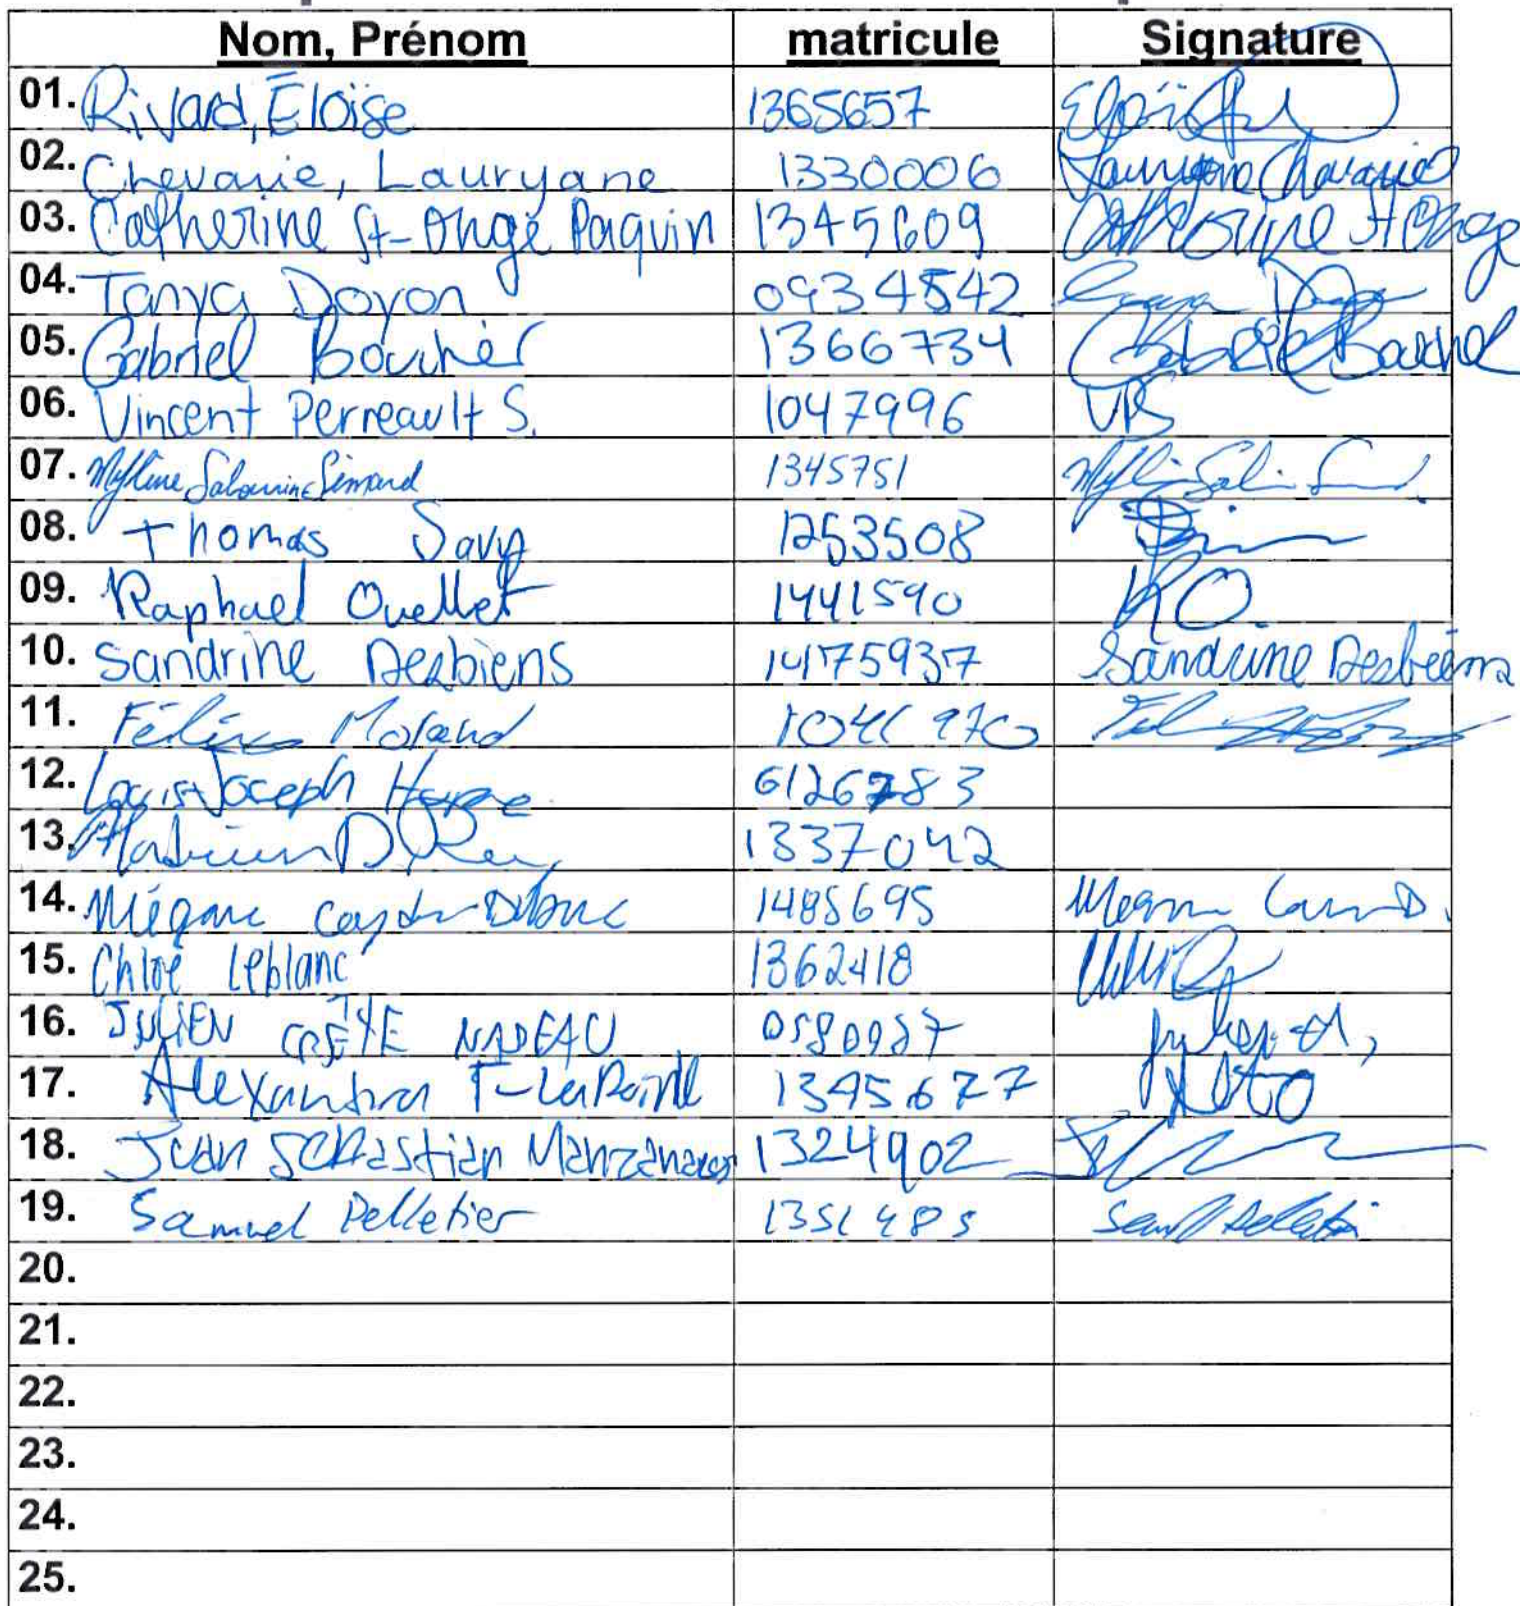 Nom, Prénom matricule Signature
01. Rivard, Éloïse 1365657
02. Chevarie, Lauryane 1330006 Lauryane Chevarie
03. Catherine St-Onge Paquin 1345609 Catherine St Onge
04. Tanya Doyon 0934542
05. Gabriel Boucher 1366734 Gabriel Boucher
06. Vincent Perreault S. 1047996 VPS
07. Mylène Simard 1345751
08. Thomas Savy 1253508
09. Raphael Ouellet 1441590 RO.
10. Sandrine Desbiens 1475937 Sandrine Desbiens
11. Morand
12. Louis-Joseph 6126783
13. 1337042
14. Mégane 1485695
15. Chloé Leblanc 1362418
16. JULIEN NADEAU
17. Alexandra T-LaPointe 1345677
18. Juan Sebastian Manzanares 1324902
19. Samuel Pelletier 1351485 Samuel Pelletier
20.
21.
22.
23.
24.
25.